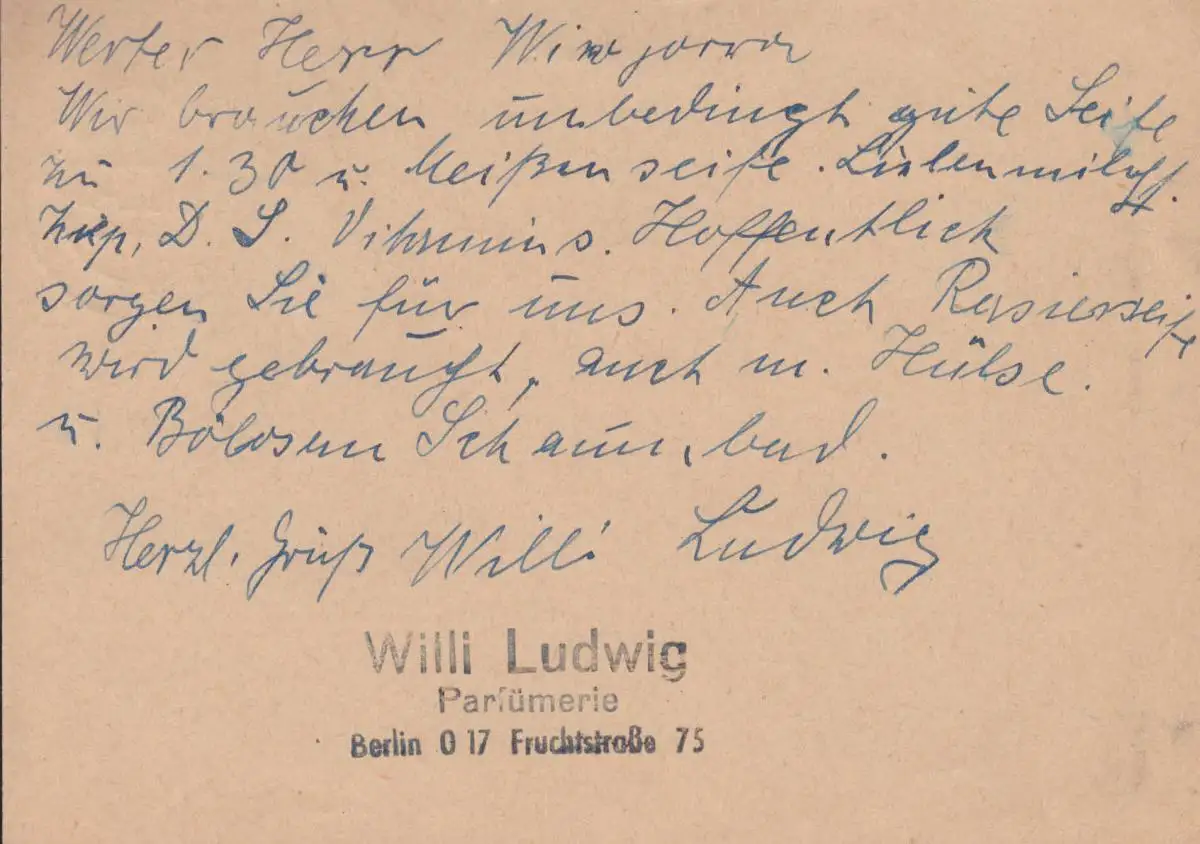 Werter Herr
Wir brauchen unbedingt gute Seife
zu 1.30 u. Meißenseife. Lilienmilchs.
D. S. Hoffentlich
sorgen Sie für uns. Auch Rasierseife
wird gebraucht, auch m. Hülse.
u. Schaumbad.
Herzl. Gruß Willi Ludwig
Willi Ludwig
Parfümerie
Berlin O 17 Fruchtstraße 75